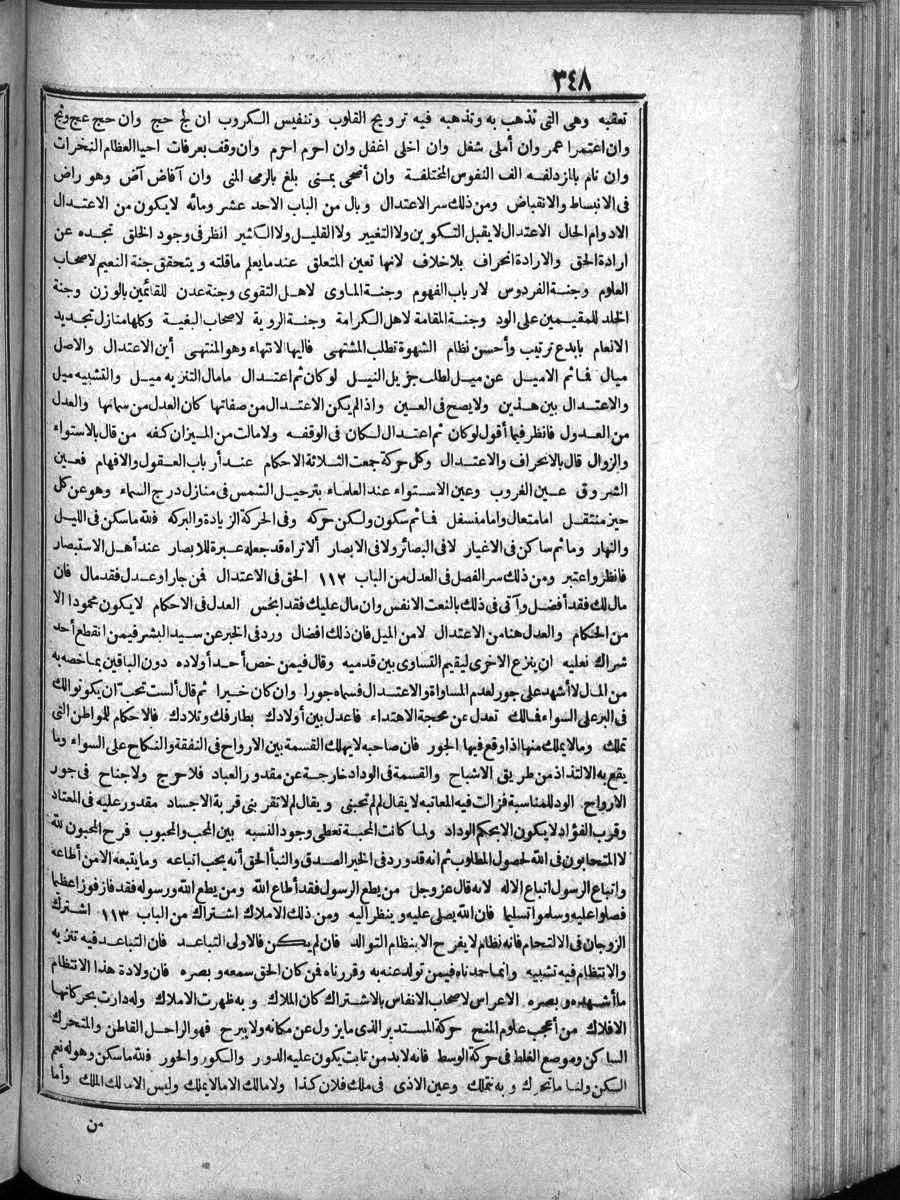 ٣٤٨
تعقبه وهى التى تذهب به وتذهبه فيه ترويح القلوب وتنفيس الكروب ان لج حج وان حج عج وثج
وان اعتمرا عمر وان أملى شغل وان اخلى اغفل وان احرم احرم وان وقف بعرفات احيا العظام النخرات
وان نام بالمزدلفة الف النفوس المختلفة وان أضحى بمنى بلغ بالرمى المنى وان آفاض آض وهو راض
فى الانبساط والانقباض ومن ذلك سر الاعتدال وبال من الباب الاحد عشر ومائه لا يكون من الاعتدال
الادوام الحال الاعتدال لا يقبل التكوين ولا التغيير ولا القليل ولا الكثير انظر فى وجود الخلق تجده عن
ارادة الحق والارادة انحراف بلا خلاف لانها تعين المتعلق عندما يعلم ما قلته ويتحقق جنة النعيم لاصحاب
العلوم وجنة الفردوس لارباب الفهوم وجنة الماوى لاهل التقوى وجنة عدن للقائمين بالوزن وجنة
الخلد للمقيمين على الود وجنة المقامة لاهل الكرامة وجنة الروية لاصحاب البغية وكلها منازل تجديد
الانعام بابدع ترتيب وأحسن نظام الشهوة تطلب المشتهى فاليها الانتهاء وهو المنتهى أين الاعتدال والاصل
ميال فماثم الاميل عن ميل لطلب جزيل النيل لو كان ثم اعتدال مامال التنزيه ميل والتشبيه ميل
والاعتدال بين هذين ولا يصح فى العين واذ الم يكن الاعتدال من صفاتها كان العدل من سماتها والعدل
من العدول فانظر فيما أقول لو كان ثم اعتدال لكان فى الوقفه ولا مالت من الميزان كفه من قال بالاستواء
والزوال قال بالانحراف والاعتدال وكل حركة جمعت الثلاثة الاحكام عند أرباب العقول والافهام فعين
الشروق عين الغروب وعين الاستواء عند العلماء بترحيل الشمس فى منازل درج السماء وهو عن كل
حيز منتقل امامتعال وامامنسفل فماثم سكون ولكن حركه وفى الحركة الزيادة والبركه فلله ماسكن فى الليل
والنهار وماثم ساكن فى الاغيار لا فى البصائر ولا فى الابصار ألا تراه قد جعله عبرة للابصار عند أهل الاستبصار
فانظر واعتبر ومن ذلك سر الفصل فى العدل من الباب ١١٢ الحق فى الاعتدال فمن جار أو عدل فقد مال فان
مال لك فقد أفضل وآتى فى ذلك بالنعت الانفس وان مال عليك فقد ابخس العدل فى الاحكام لا يكون محمودا الا
من الحكام والعدل هنا من الاعتدال لا من الميل فان ذلك افضال ورد فى الخبر عن سيد البشر فيمن انقطع أحد
شراك نعليه ان ينزع الاخرى ليقيم التساوى بين قدميه وقال فيمن خص أحد أولاده دون الباقين بما خصه به
من المال لا أشهد على جور لعدم المساواة والاعتدال فسماه جورا وان كان خيرا ثم قال ألست تحب ان يكونوا لك
فى البر على السواء فمالك تعدل عن محجة الاهتداء فاعدل بين أولادك بطارفك وتلادك فالاحكام للمواطن التى
تملك ومالا يملك منها اذا وقع فيها الجور فان صاحبه لا يهلك القسمة بين الارواح فى النفقة والنكاح على السواء وما
يقع به الالتذاذ من طريق الاشباح والقسمة فى الوداد خارجة عن مقدور العباد فلا حرج ولا جناح فى جور
الارواح الود للمناسبة فزالت فيه المعاتبه لا يقال لم لم تحبنى ويقال لم لا تقربنى قربة الاجساد مقدور عليه فى المعتاد
وقرب الفؤاد لا يكون الا بحكم الوداد ولما كانت المحبة تعطى وجود النسبه بين المحب والمحبوب فرح المحبون لله
لا المتحابون فى الله لحصول المطلوب ثم انه قد ورد فى الخبر الصدق والنبأ الحق أنه يحب اتباعه وما يتبعه الا من أطاعه
واتباع الرسول اتباع الاله لانه قال عز وجل من يطع الرسول فقد أطاع الله ومن يطع الله ورسوله فقد فاز فوزا عظيما
فصلوا عليه وسلموا تسليما فان الله يصلى عليه وينظر اليه ومن ذلك الاملاك اشتراك من الباب ١١٣ اشترك
الزوجان فى الالتحام فانه نظام لا يفرح الا بنظام التوالد فان لم يكن فالاولى التباعد فان التباعد فيه تنزيه
والانتظام فيه تشبيه وانما حمدناه فيمن تولد عنه به وقررناه فمن كان الحق سمعه وبصره فان ولادة هذا الانتظام
ما أشهده وبصره الاعراس لاصحاب الانفاس بالاشتراك كان الملاك وبه ظهرت الاملاك وله دارت بحركاتها
الافلاك من أعجب علوم المنح حركة المستدير الذى ما يزول عن مكانه ولا يبرح فهو الراحل القاطن والمتحرك
الساكن وموضع الغلط فى حركة الوسط فانه لا بد من ثابت يكون عليه الدور والكور والحور فلله ماسكن وهو له نعم
السكن ولنا ما تحرك وبه نتملك وعين الاذى فى ملك فلان كذا ولا مالك الا مالا يملك وليس الا مالك الملك وأما
من